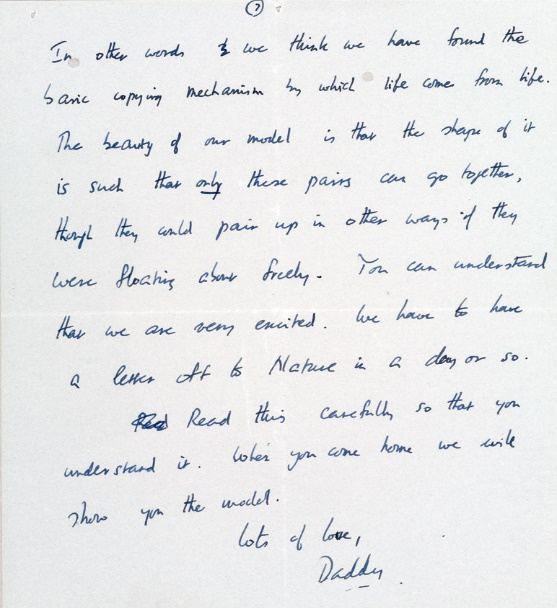 7
In other words we think we have found the
basic copying mechanism by which life comes from life.
The beauty of our model is that the shape of it
is such that only these pairs can go together,
though they could pair up in other ways if they
were floating about freely. You can understand
that we are very excited. We have to have
a letter off to Nature in a day or so.
Read Read this carefully so that you
understand it. When you come home we will
show you the model.
Lots of love,
Daddy